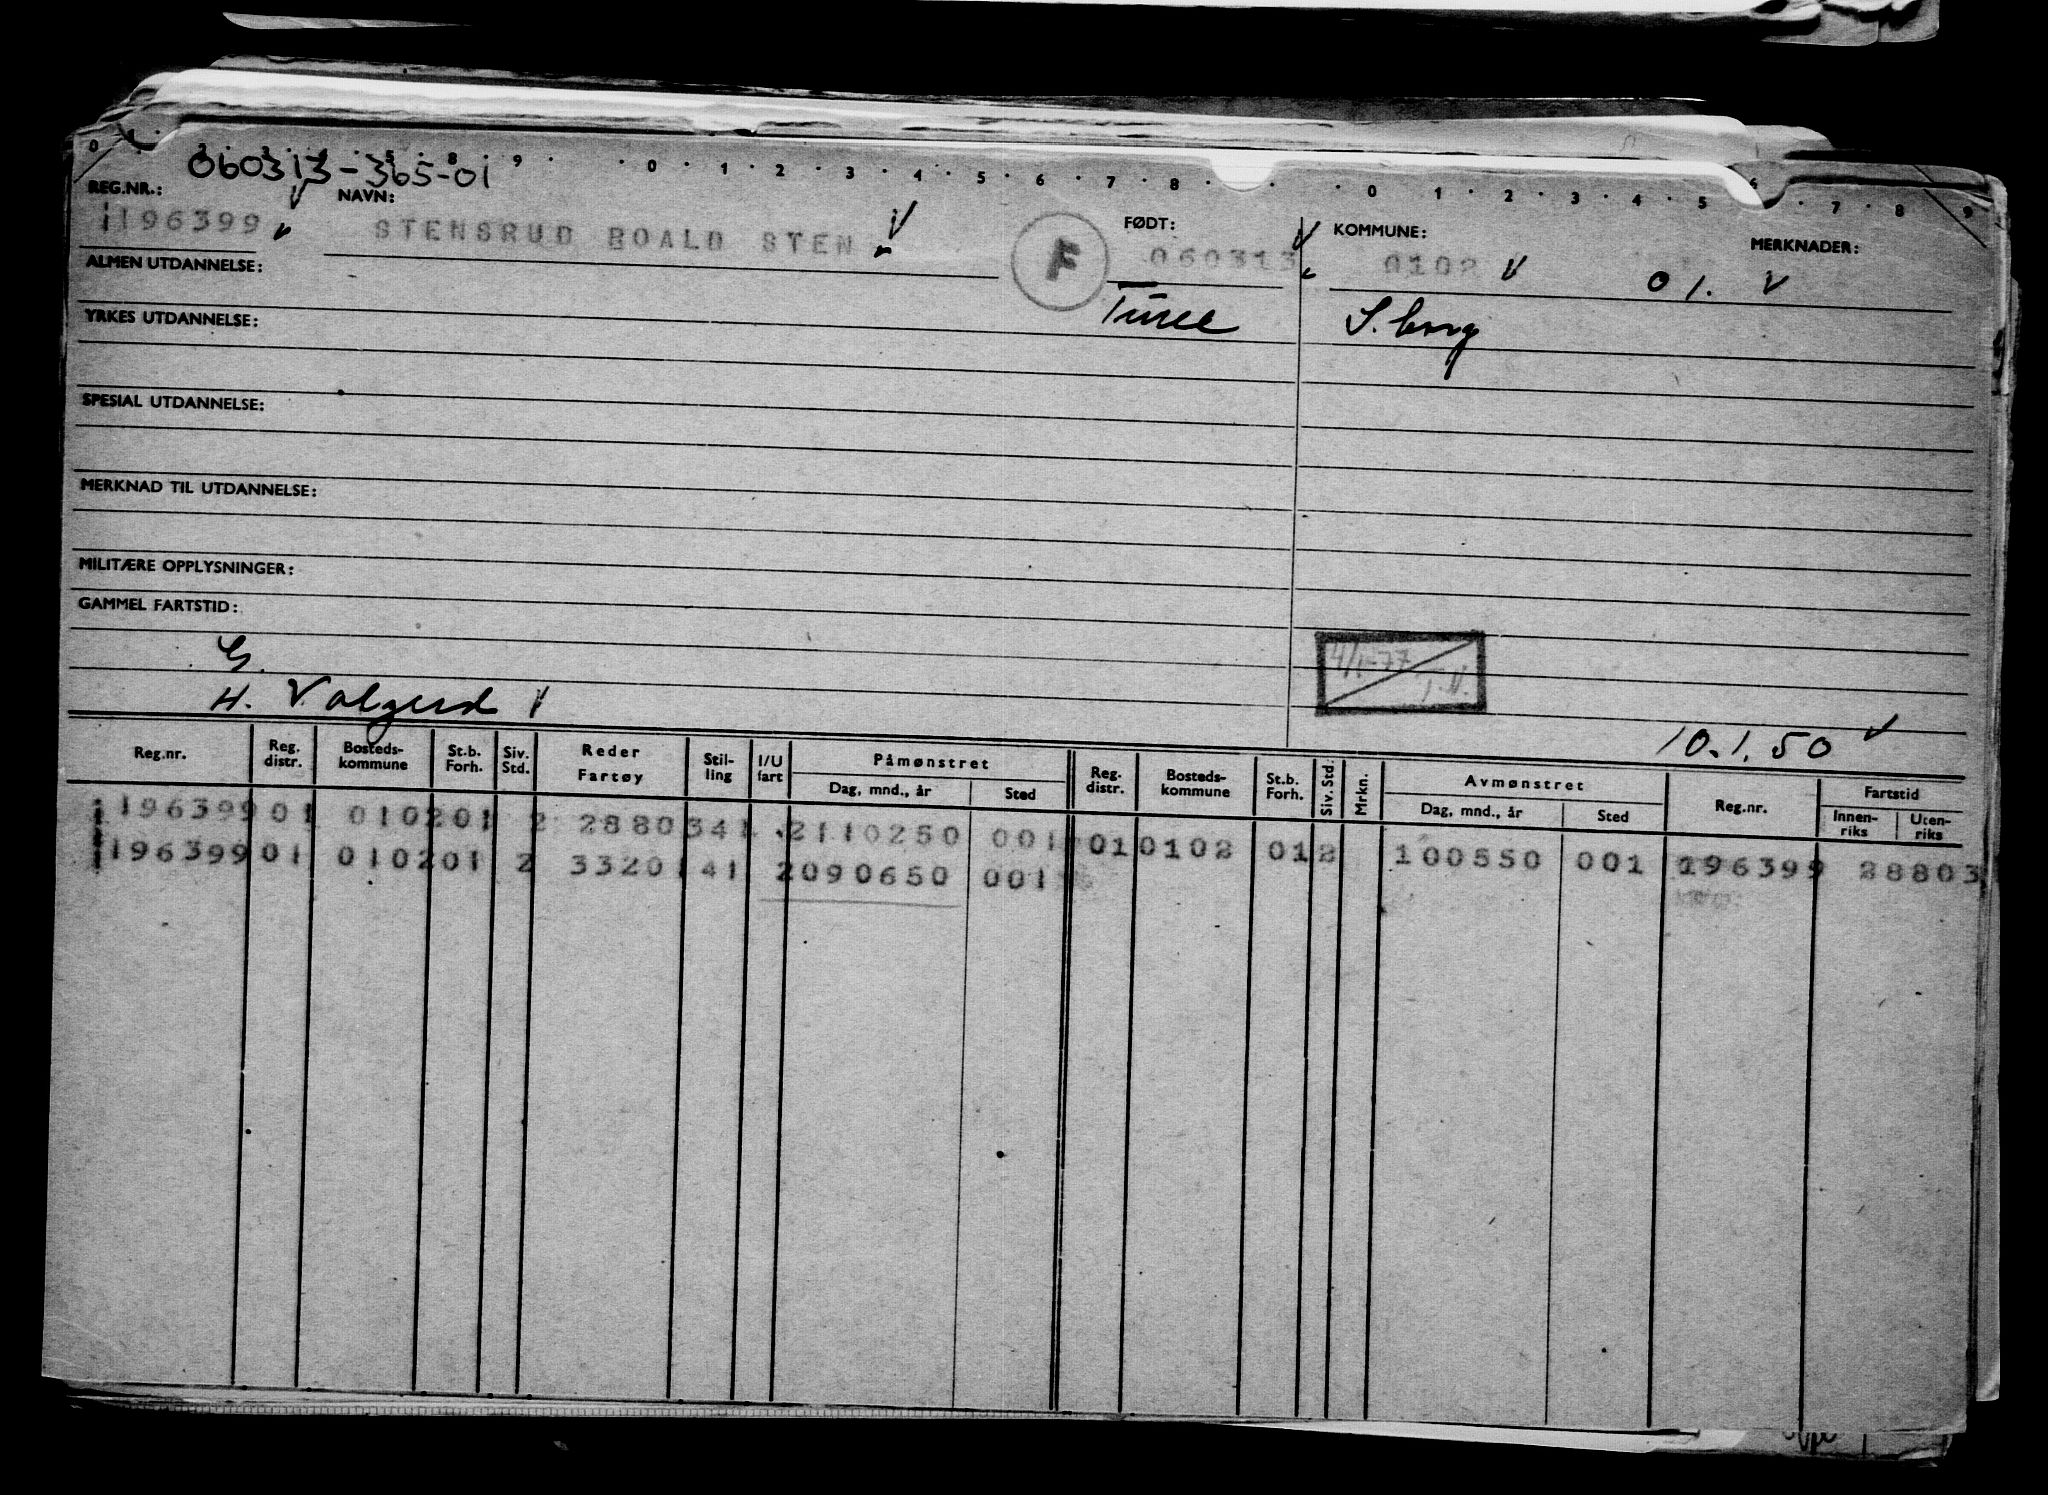 0 1 2 3 4 5 6 7 8 9 0 1 2 3 4 5 6 7 8 9
060313-365-01
REG.NR.: NAVN: FØDT: KOMMUNE: MERKNADER:
196399 STENSRUD BOALD STEN F 060313 0102 01.
ALMEN UTDANNELSE:
S.borg
YRKES UTDANNELSE:
SPESIAL UTDANNELSE:
MERKNAD TIL UTDANNELSE:
MILITÆRE OPPLYSNINGER:
GAMMEL FARTSTID:
G.
4/1-77 T.N.
H. Valgerd
10.1.50
Reg.nr. Reg. distr. Bosteds- kommune St.b. Forh. Siv. Std. Reder Fartøy Stil- ling I/U fart Påmønstret Dag, mnd., år Sted Reg. distr. Bosteds- kommune St.b. Forh. Siv. Std. Mrkn. Avmønstret Dag, mnd., år Sted Reg.nr. Fartstid Innen- riks Uten- riks
196399 01 0102 01 2 28803 41 2 110250 001 01 0102 01 2 100550 001 196399 28803
196399 01 0102 01 2 33201 41 2 090650 001